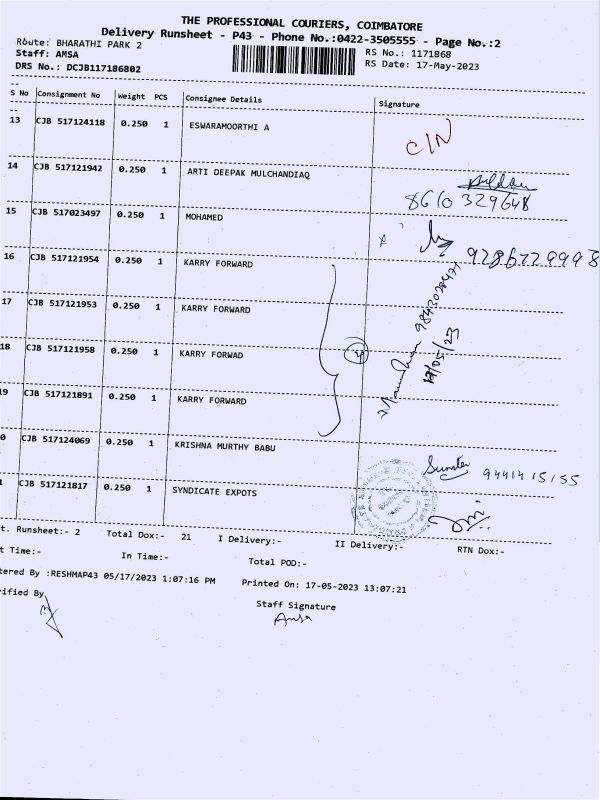 THE PROFESSIONAL COURIERS, COIMBATORE
Delivery Runsheet - P43 - Phone No.:0422-3505555 - Page No.:2
Route: BHARATHI PARK 2
RS No.: 1171868
Staff: AMSA
RS Date: 17-May-2023
DRS No.: DCJB117186802
S No Consignment No Weight PCS Consignee Details Signature
13 CJB 517124118 0.250 1 ESWARAMOORTHI A
C/N
14 CJB 517121942 0.250 1 ARTI DEEPAK MULCHANDIAQ
8610 329648
15 CJB 517023497 0.250 1 MOHAMED
16 CJB 517121954 0.250 1 KARRY FORWARD
17 CJB 517121953 0.250 1 KARRY FORWARD
17/05/23
18 CJB 517121958 0.250 1 KARRY FORWAD
9 CJB 517121891 0.250 1 KARRY FORWARD
0 CJB 517124069 0.250 1 KRISHNA MURTHY BABU
9441415155
CJB 517121817 0.250 1 SYNDICATE EXPOTS
t. Runsheet:- 2 Total Dox:- 21 I Delivery:- II Delivery:- RTN Dox:-
t Time:- In Time:- Total POD:-
tered By :RESHMAP43 05/17/2023 1:07:16 PM Printed On: 17-05-2023 13:07:21
rified By
Staff Signature
Amsa